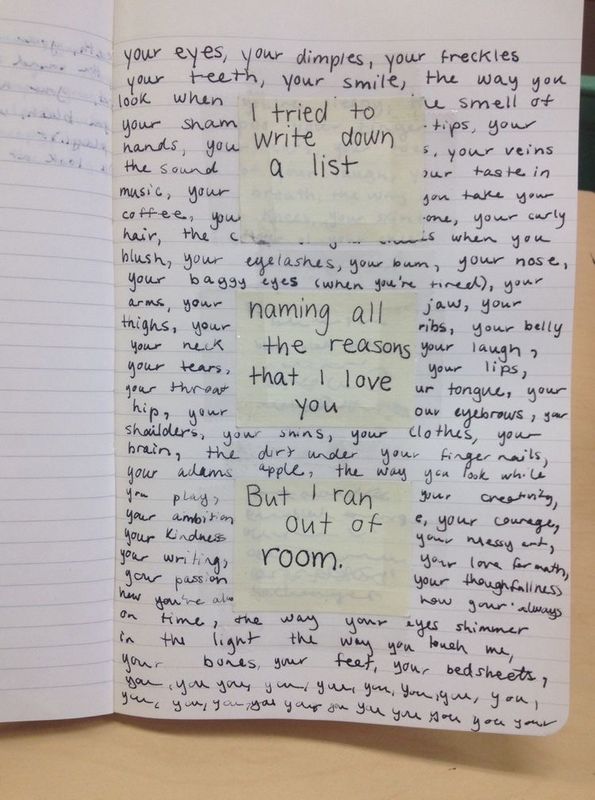 your eyes, your dimples, your freckles
your teeth, your smile, the way you
look when smell of
your sham tips, your
hands, you s, your veins
the sound our taste in
music, your you take your
coffee, you one, your curly
hair, the when you
blush, your eyelashes, your bum, your nose,
your baggy eyes (when you're tired), your
arms, your jaw, your
thighs, your ribs, your belly
your neck your laugh,
your tears, your lips,
your throat ur tongue, your
hip, your our eyebrows, your
shoulders, your shins, your clothes, your
brain, the dirt under your finger nails,
your adams apple, the way you look while
you play, your creativity,
your ambition e, your courage,
your kindness your messy art,
your writing, your love for math,
your passion your thoughtfullness
how you're also how your always
on time, the way your eyes shimmer
in the light the way you touch me,
your bones, your feet, your bedsheets,
you, you you, you, you, you, you, you, you,
you, you, you, you, you your you you you you you your
I tried to
write down
a list
naming all
the reasons
that I love
you
But I ran
out of
room.